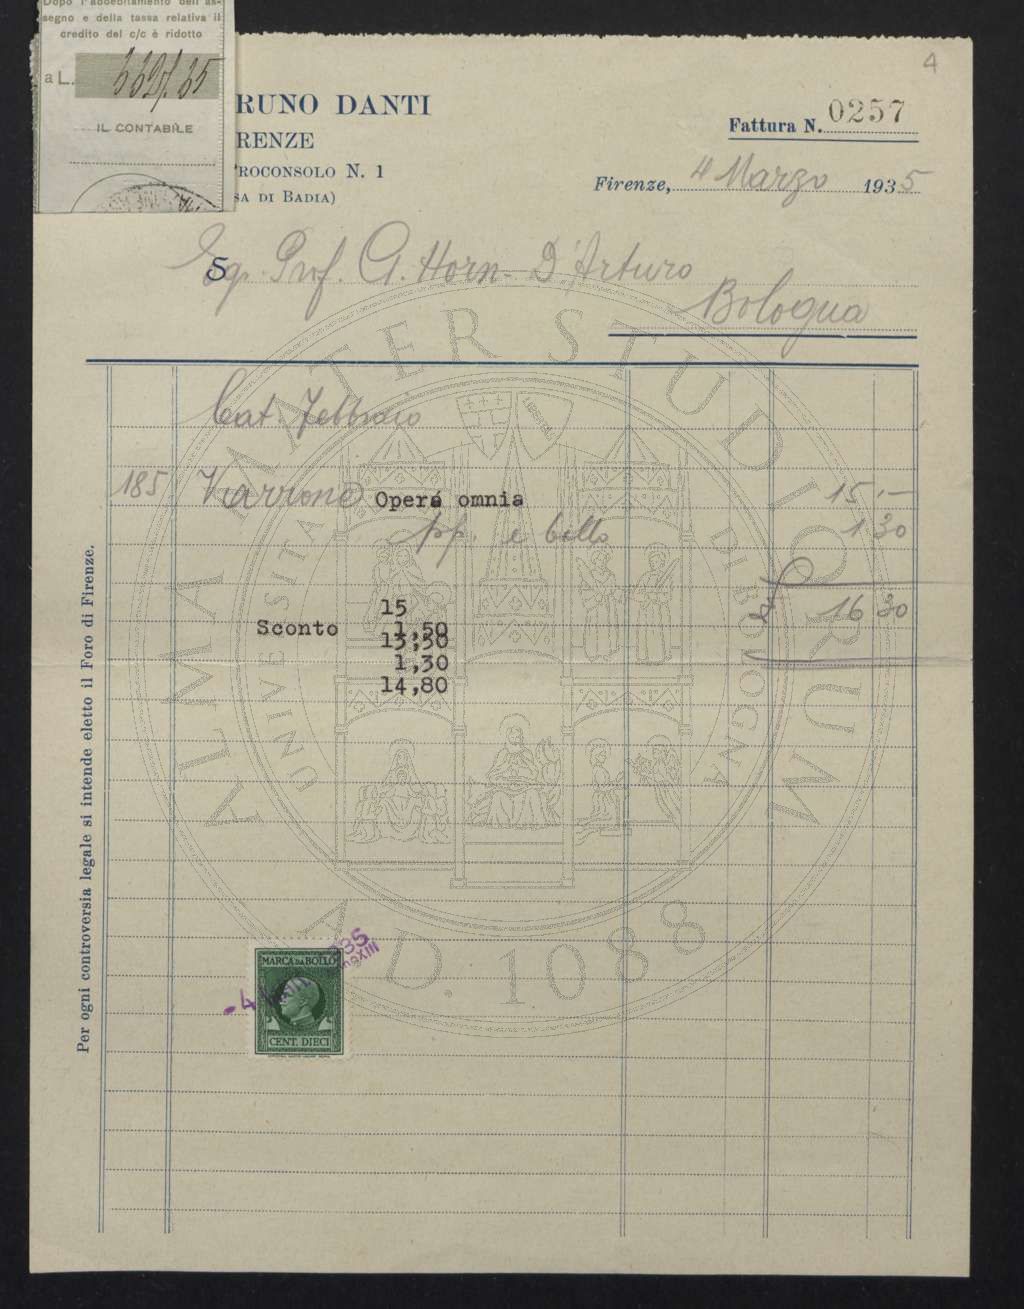 Dopo l'addebitamento dell'as-
segno e della tassa relativa il
credito del c/c è ridotto
a L.
IL CONTABILE
4
RUNO DANTI
RENZE
ROCONSOLO N. 1
SA DI BADIA)
Fattura N. 0257
Firenze, 4 Marzo 1935
Sg. Prof. G. Horn-D'Arturo
Bologna
Cat. Febbraio
185 Varrone Opera omnia 15,—
pp. e bollo 1 30
16 30
15
Sconto 1,50
13,50
1,30
14,80
Per ogni controversia legale si intende eletto il Foro di Firenze.
MARCA DA BOLLO
CENT. DIECI
ALMA MATER STUDIORUM
UNIVERSITA DI BOLOGNA
LIBERTAS
A.D. 1088